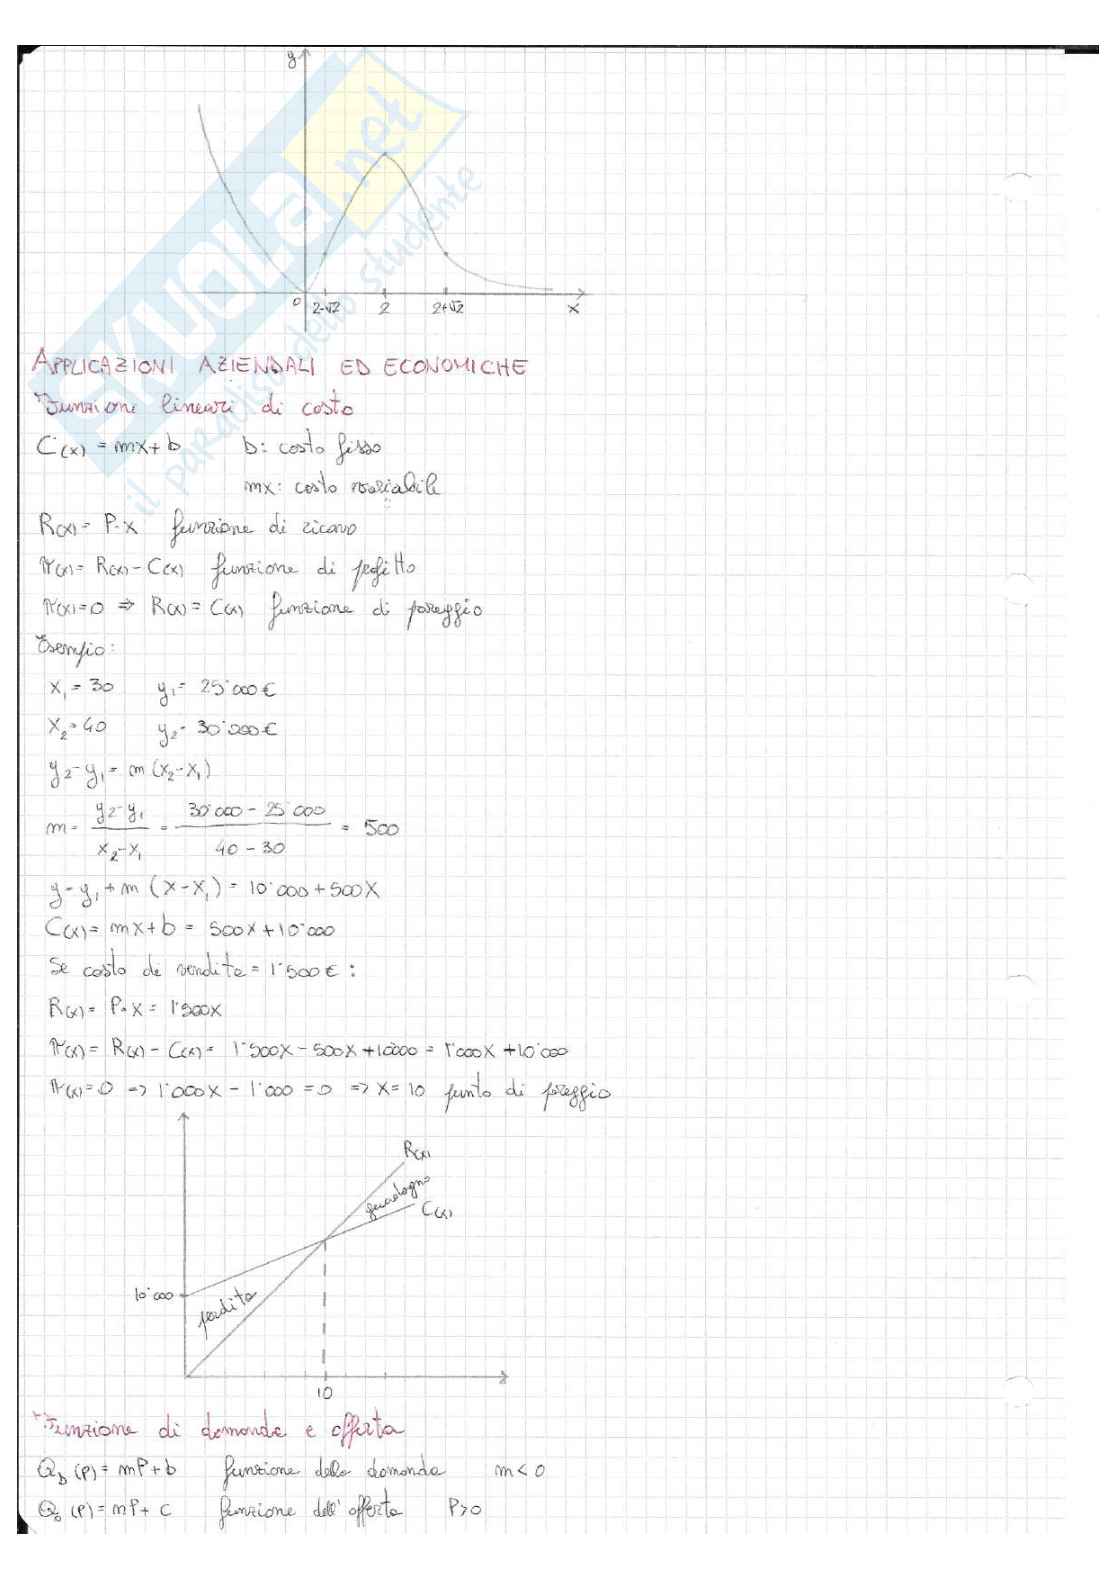 y
0 2-√2 2 2+√2 x
SKUOLA.net
il paradiso dello studente
APPLICAZIONI AZIENDALI ED ECONOMICHE
Funzione lineari di costo
C(x) = mx+b b: costo fisso
mx: costo variabile
R(x)= P·x funzione di ricavo
π(x)= R(x)-C(x) funzione di profitto
π(x)=0 ⇒ R(x)=C(x) funzione di pareggio
Esempio:
x₁=30 y₁= 25'000€
x₂=40 y₂= 30'000€
y₂-y₁= m(x₂-x₁)
m= y₂-y₁ / x₂-x₁ = 30'000-25'000 / 40-30 = 500
y-y₁+m(x-x₁)=10'000+500x
C(x)= mx+b = 500x+10'000
Se costo di vendita=1'500€:
R(x)= P·x=1'500x
π(x)= R(x)-C(x)= 1'500x-500x+10000=1'000x+10'000
π(x)=0 => 1'000x-1'000=0 => x=10 punto di pareggio
R(x)
guadagno
C(x)
10'000
perdita
10
Funzione di domanda e offerta
Q_D(P)=mP+b funzione della domanda m<0
Q_o(P)=mP+c funzione dell'offerta P>0